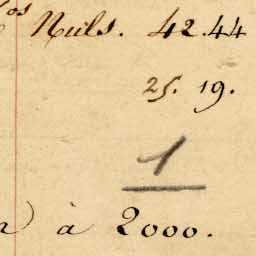 os Nuls. 42.44
25. 19.
1
) à 2000.